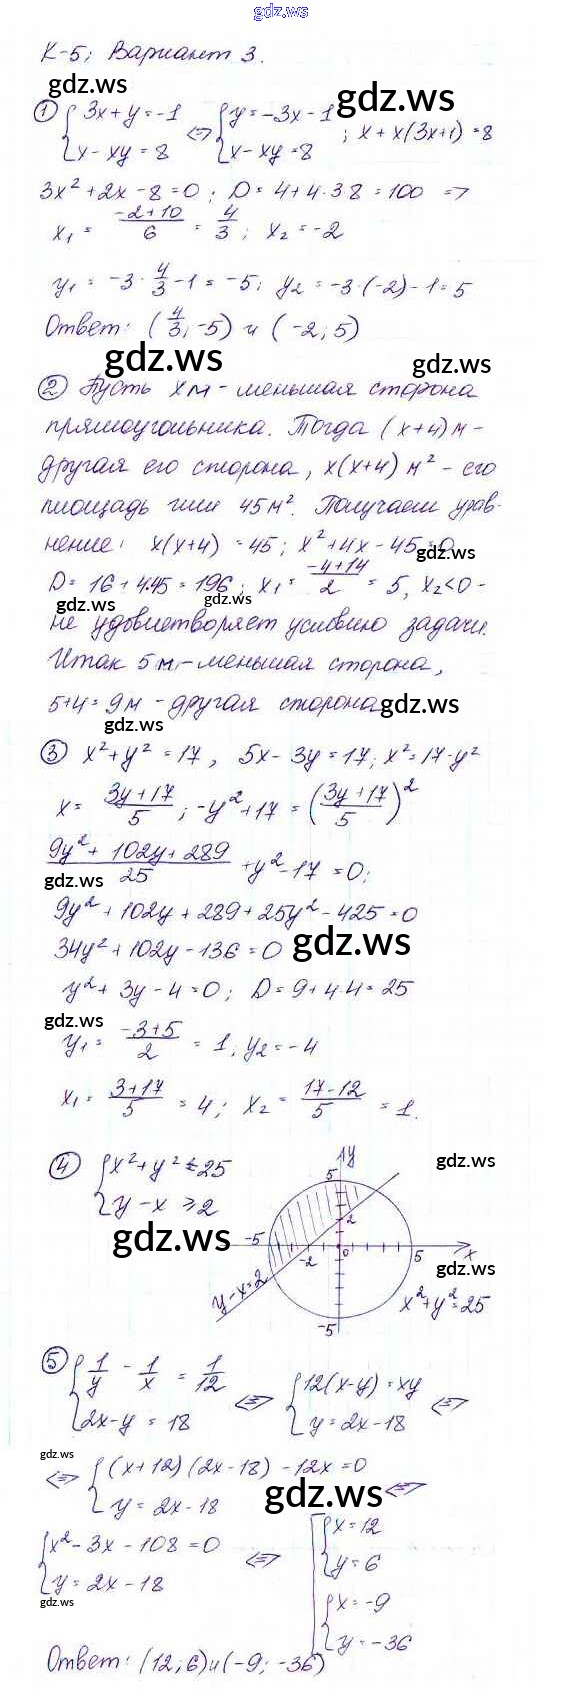 gdz.ws
К-5; Вариант 3.
gdz.ws
gdz.ws
① {3x+y=-1 ⇔ {y=-3x-1 ; x+x(3x+1)=8
{x-xy=8 {x-xy=8
3x²+2x-8=0; D=4+4·3·8=100 ⇒
x₁ = (-2+10)/6 = 4/3; x₂=-2
y₁ = -3·4/3-1 = -5; y₂ = -3·(-2)-1=5
Ответ: (4/3; -5) и (-2; 5)
gdz.ws
gdz.ws
② Пусть x м - меньшая сторона
прямоугольника. Тогда (x+4) м -
другая его сторона, x(x+4) м² - его
площадь или 45 м². Получаем урав-
нение: x(x+4) =45; x²+4x-45=0
gdz.ws
D=16+4·45=196; x₁= (-4+14)/2 = 5, x₂<0 -
gdz.ws
gdz.ws
не удовлетворяет условию задачи.
Итак 5 м - меньшая сторона,
5+4=9 м - другая сторона
gdz.ws
gdz.ws
③ x²+y²=17, 5x-3y=17; x²=17-y²
x= (3y+17)/5; -y²+17=((3y+17)/5)²
(9y²+102y+289)/25 +y²-17=0;
gdz.ws
9y²+102y+289+25y²-425=0
34y²+102y-136=0
gdz.ws
y²+3y-4=0; D=9+4·4=25
gdz.ws
y₁= (-3+5)/2 = 1, y₂=-4
x₁= (3+17)/5 = 4; x₂= (17-12)/5 = 1.
④ {x²+y²≤25
{y-x≥2
gdz.ws
gdz.ws
y
5
2
-5
-2
0
5
x
gdz.ws
y-x=2
x²+y²=25
-5
⑤ {1/y - 1/x = 1/12 ⇔ {12(x-y)=xy ⇔
{2x-y=18 {y=2x-18
gdz.ws
⇔ {(x+12)(2x-18)-12x=0 ⇔
{y=2x-18
gdz.ws
{x²-3x-108=0 ⇔ [{x=12
{y=2x-18 {y=6
{x=-9
{y=-36
gdz.ws
Ответ: (12; 6) и (-9; -36)